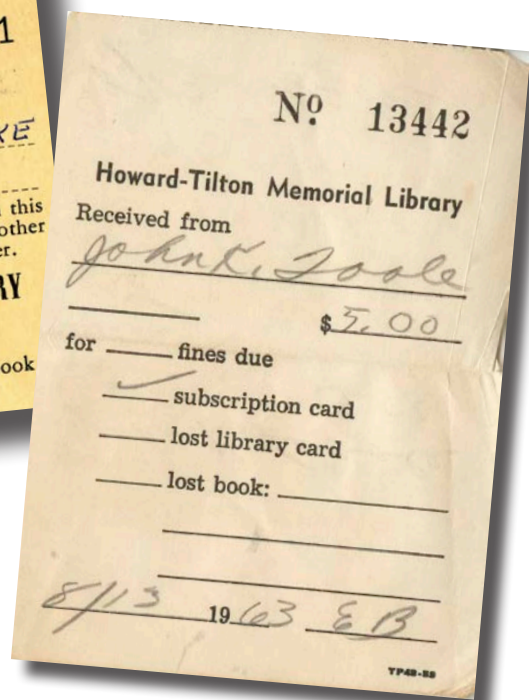 1
KE
this
other
er.
RY
ook
Nº 13442
Howard-Tilton Memorial Library
Received from
John K. Toole
$5.00
for ____ fines due
✓ subscription card
____ lost library card
____ lost book: ____
8/13 1963 EB
TP48-58